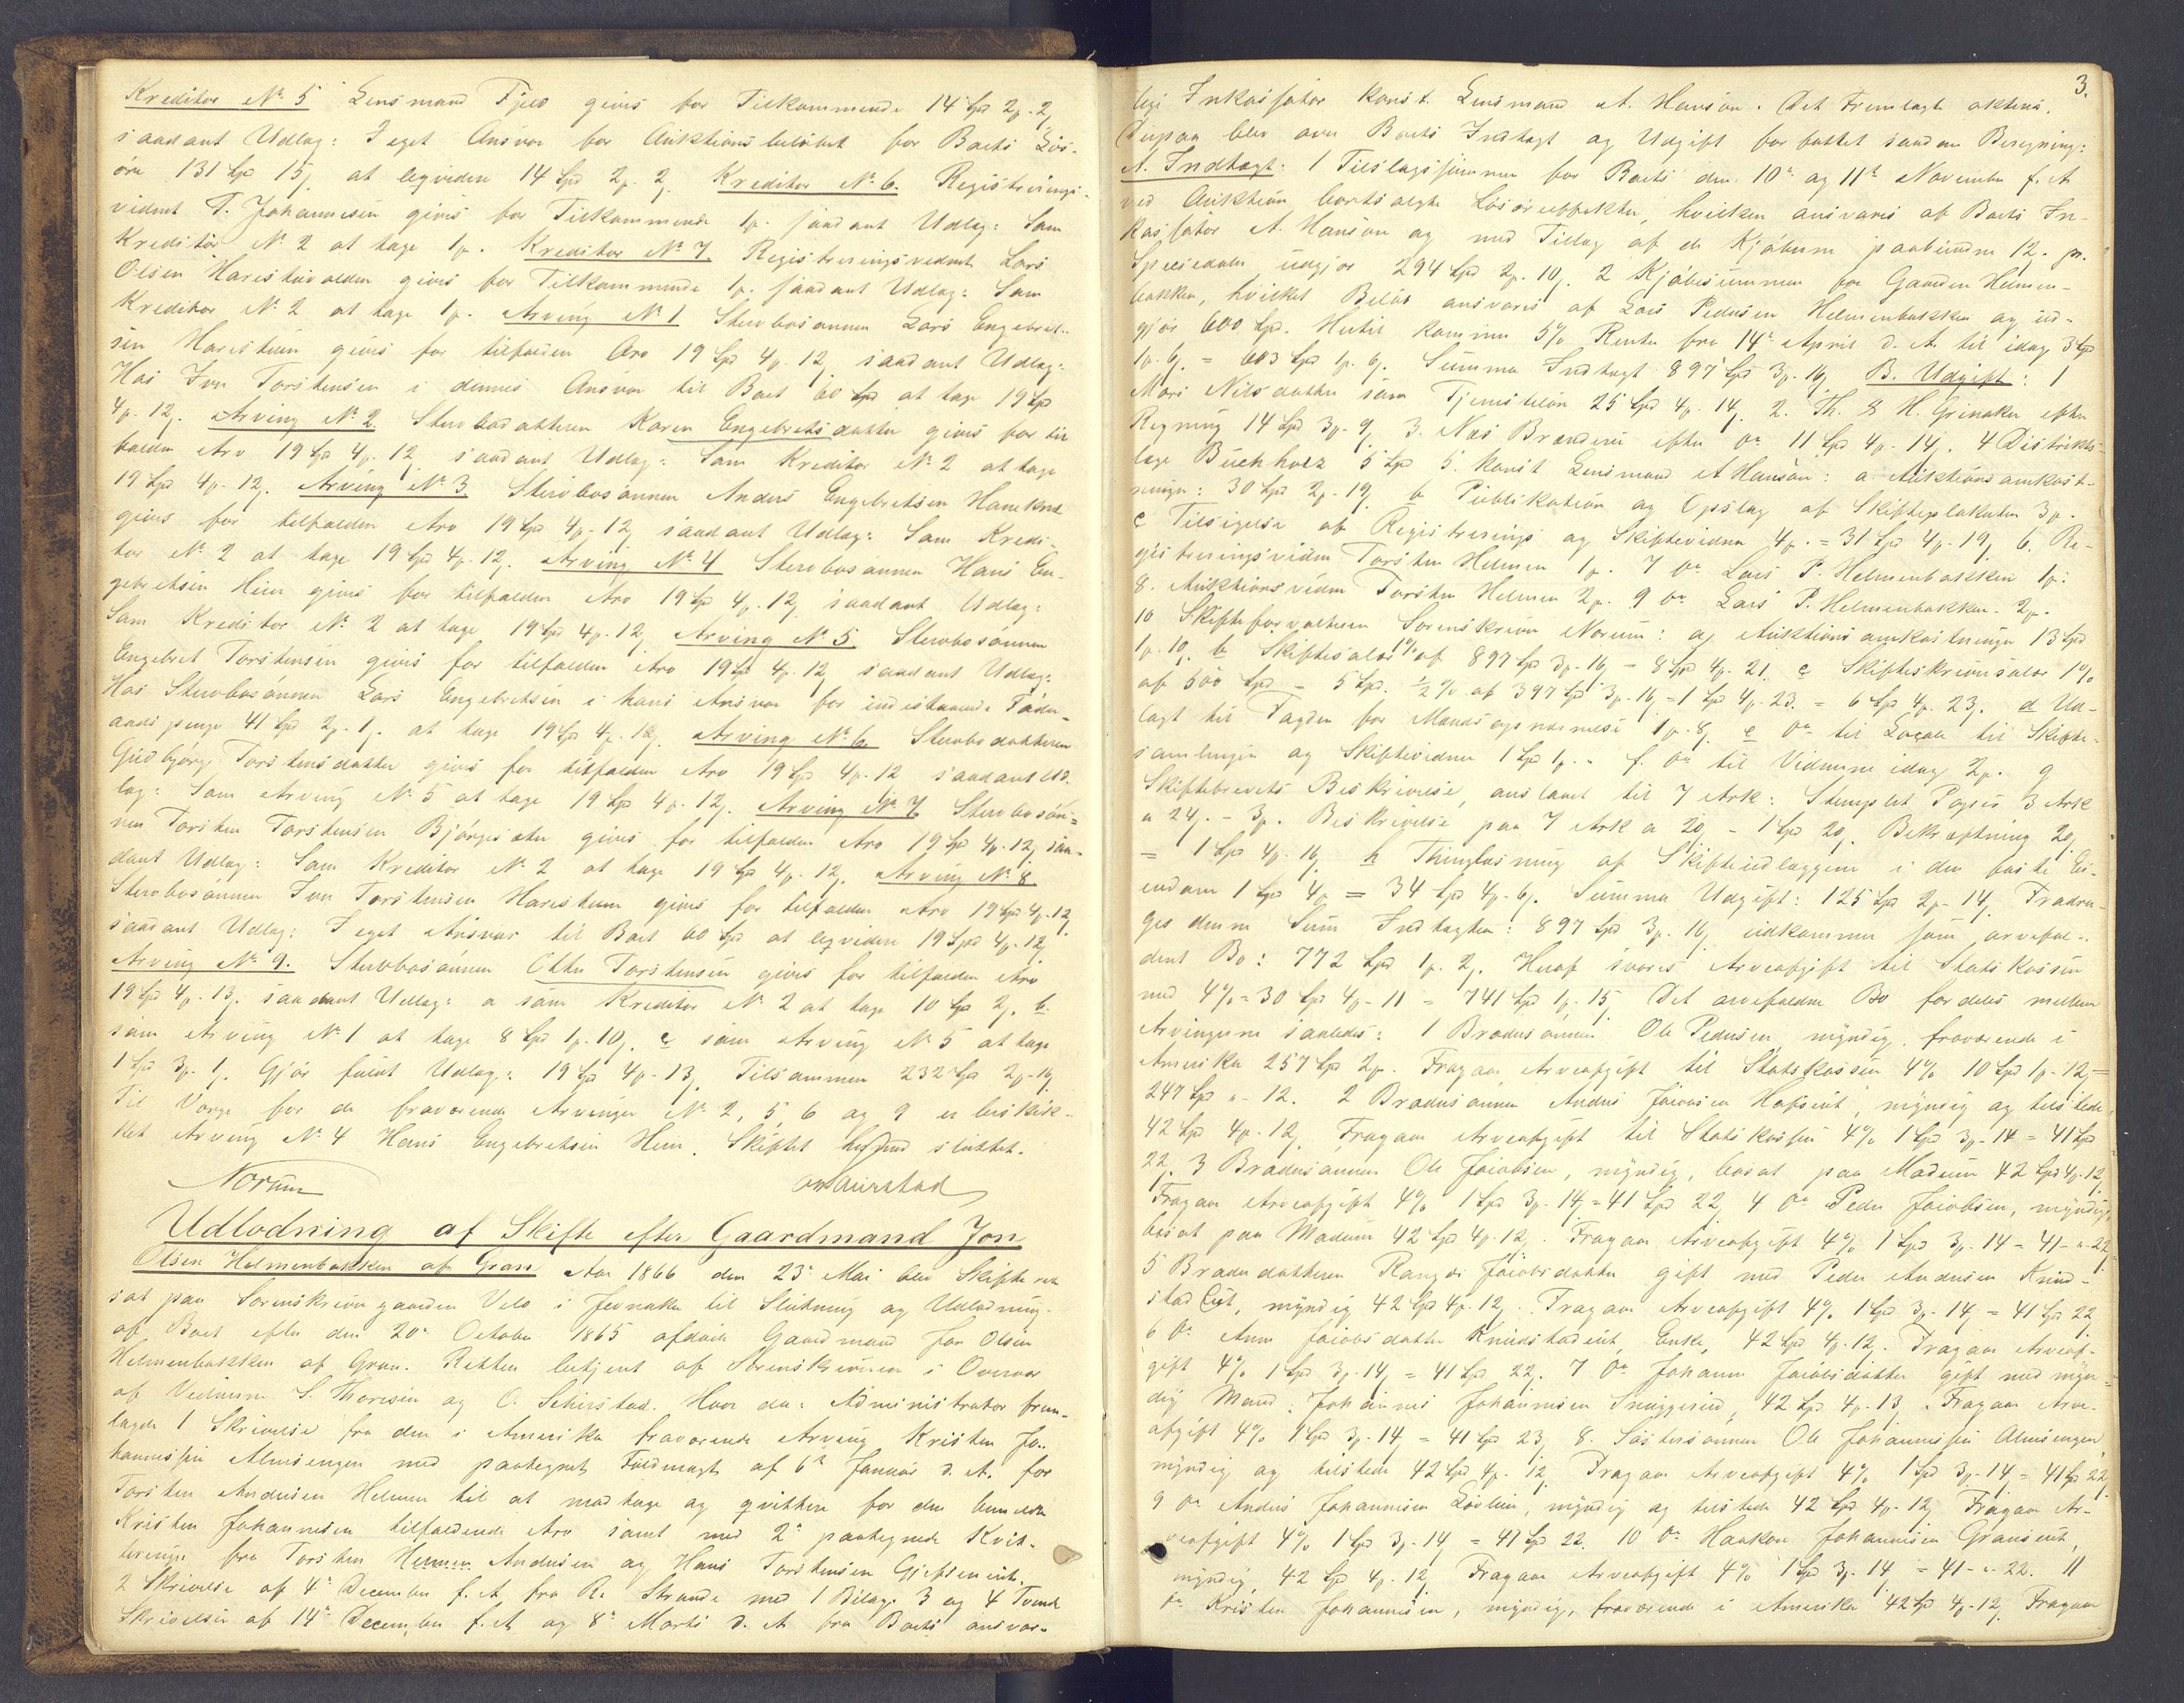 Kreditor No 5 Lensmand Fjeld givis for Tilkommende 14 Spd 2 ₰. 2
saadant Udlæg: I eget Ansvar for Auktionsbeløbet for Boets Løs-
øre 131 Spd 15 at legvidere 14 Spd 2. 2. Kreditor No 6. Registrerings-
vident T. Johannesen givis for Tilkommende 1 saadant Udlæg: Som
Kreditor No 2 at tage 1. Kreditor No 7. Registreringsvident Lars
Olsen givis for Tilkommende 1 saadant Udlæg: Som
Kreditor No 2 at tage 1. Arving No 1 Stervbosønnen Lars Engebret-
sen Harestuen givis for tilfalden Arv 19 Spd 4. 12 saadant Udlæg:
Hos Iver Torstensen i dennes Ansvar til Boet 60 Spd at tage 19 Spd
4. 12. Arving No 2. Stervbodatteren Karen Engebretsdatter givis for til
falden Arv 19 Spd 4. 12 saadant Udlæg: Som Kreditor No 2 at tage
19 Spd 4. 12. Arving No 3 Stervbosønnen Anders Engebretsen
givis for tilfalden Arv 19 Spd 4. 12 saadant Udlæg: Som Kredi-
tor No 2 at tage 19 Spd 4. 12. Arving No 4 Stervbosønnen Hans En-
gebretsen Hem givis for tilfalden Arv 19 Spd 4. 12 saadant Udlæg:
Som Kreditor No 2 at tage 19 Spd 4. 12 Arving No 5 Stervbosønnen
Engebret Torstensen givis for tilfalden Arv 19 Spd 4. 12 saadant Udlæg:
Hos Stervbosønnen Lars Engebretsen i hans Ansvar for indestaaende Føde-
raadspenge 41 Spd 2. 1. at tage 19 Spd 4. 12. Arving No 6. Stervbodatteren
Gudbjørg Torstensdatter givis for tilfalden Arv 19 Spd 4. 12 saadant Ud-
læg: Som Arving No 5 at tage 19 Spd 4. 12. Arving No 7 Stervbosøn-
nen Torsten Torstensen givis for tilfalden Arv 19 Spd 4. 12 saa-
dant Udlæg: Som Kreditor No 2 at tage 19 Spd 4. 12. Arving No 8.
Stervbosønnen Iver Torstensen Harestuen givis for tilfalden Arv 19 Spd 4. 12
saadant Udlæg: I eget Ansvar til Boet 60 Spd at legvidere 19 Spd 4. 12
Arving No 9. Stervbosønnen Otter Torstensen givis for tilfalden Arv
19 Spd 4. 13. saadant Udlæg: a som Kreditor No 2 at tage 10 Spd 2. b.
som Arving No 1 at tage 8 Spd 1. 10. c som Arving No 5 at tage
1 Spd 3. 1. Gjør fuldt Udlæg: 19 Spd 4. 13 Tilsammen 232 Spd 2. 14
Til Værge for de fraværende Arvinger No 2, 5 6 og 9 er beskik-
ket Arving No 4 Hans Engebretsen Hem. Skiftet hermed sluttet.
Norum
Udlodning af Skifte efter Gaardmand Jon
Olsen Helmenbakken af Gran Aar 1866 den 23de Mai blev Skifteret
sat paa Sorenskrivergaarden Velo i Jevnaker til Slutning og Udlodning
af Boet efter den 20de October 1865 afdøde Gaardmand Jon Olsen
Helmenbakken af Gran. Retten betjent af Sorenskriveren i Overvær
af Vidnerne S. Thoresen og O. Schirstad. Hvor da: Administrator frem-
lagde 1 Skrivelse fra den i Amerika fraværende Arving Kristen Jo-
hannessen Almsengen med paategnet Fuldmagt af 6te Januar d. A. for
Torsten Andersen Helmen til at modtage og qvittere for den bemeldte
Kristen Johannesen tilfaldende Arv samt med 2de paategnede Kvit-
teringer fra Torsten Helmen Andersen og Hans Torstensen
2 Skrivelse af 4de December f. A. fra R. Strande med 1 Bilag. 3 og 4 Tvende
Skrivelser af 14de December f. A. og 8de Marts d. A. fra Boets ansvar-
3.
lige Inkassator konst. Lensmand A. Hansen. Det Fremlagte akteres.
Derpaa blev over Boets Indtægt og Udgift forfattet saadan Beregning:
A. Indtægt: 1 Tilslagssummen for Boets den 10de og 11te November f. A.
ved Auktion bortsolgte Løsøreeffekter, hvilken ansvares af Boets In-
kassator A. Hansen og med Tillæg af de Kjøberne paabudne 12 pr.
Speciedaler udgjør 294 Spd 2. 10. 2 Kjøbesummen for Gaarden Helmen-
bakken, hvilket Beløb ansvares af Lars Pedersen Helmenbakken og ud-
gjør 600 Spd. Hertil kommer 5% Rente fra 14de April d. A. til idag 3 Spd
1. 6. = 603 Spd 1. 6. Summa Indtægt 897 Spd 3. 16 B. Udgift: 1
Mari Nilsdatter som Tjenesteløn 25 Spd 4. 14. 2. Th. & H. Grinaker efter
Regning 14 Spd 3. 9. 3. Nes Brænderi efter Do 11 Spd 4. 14. 4 Distrikts-
læge Buchholz 5 Spd 5. konst Lensmand A Hansen: a Auktionsomkost-
ninger: 30 Spd 2. 19. b Publikation og Opslag af Skifteplakaten 3.
c Tilsigelse af Registrerings og Skiftevidner 4. = 31 Spd 4. 19. 6. Re-
gistreringsvidne Torsten Helmen 1. 7 Do Lars P. Helmenbakken 1.
8. Auktionsvidne Torsten Helmen 2. 9 Do Lars P. Helmenbakken. 2.
10 Skifteforvalteren Sorenskriver Norum: a, Auktionsomkostninger 13 Spd
1. 10. b Skiftesalær 1% af 897 Spd 3. 16 = 8 Spd 4. 21. c Skifteskriversalær 1%
af 500 Spd = 5 Spd. ½% af 397 Spd 3. 16 = 1 Spd 4. 23. = 6 Spd 4. 23. d Ud-
lagt til Fogden for Mandsopnævnelse 1. 8. e Do til Locale til Skifte-
samlingen og Skiftevidner 1 Spd 1. f. Do til Vidnerne idag 2. g
Skiftebrevets Beskrivelse, anslaaet til 7 Ark: Stemplet Papir 3 Ark
a 24. - 3. Beskrivelse paa 7 Ark a 20 - 1 Spd 20. Bekræftning 20.
= 1 Spd 4. 16 h Thinglæsning af Skifteudlæggene i den faste Ei-
endom 1 Spd 4 = 34 Spd 4. 6. Summa Udgift: 125 Spd 2. 14. Fradra-
ges denne Sum Indtægten: 897 Spd 3. 16 udkommer som arvefal-
dent Bo: 772 Spd 1. 2. Heraf svares Arveafgift til Statskassen
med 4% = 30 Spd 4. 11 = 741 Spd 1. 15. Det arvefaldne Bo fordeles mellem
Arvingerne saaledes: 1 Brodersønnen Ole Pedersen myndig, fraværende i
Amerika 257 Spd 2. Fragaar Arveafgift til Statskassen 4% 10 Spd 1. 12 =
247 Spd " 12. 2 Brodersønnen Anders Jacobsen, myndig og tilstede
42 Spd 4. 12. Fragaar Arveafgift til Statskassen 4% 1 Spd 3. 14 = 41 Spd
22. 3 Brodersønnen Ole Jacobsen, myndig, bosat paa Modum 42 Spd 4. 12
Fragaar Arveafgift 4% 1 Spd 3. 14 = 41 Spd 22 4 Do Peder Jacobsen, myndig,
bosat paa Modum 42 Spd 4. 12. Fragaar Arveafgift 4% 1 Spd 3. 14 = 41 - " - 22
5 Broderdatteren Rangdi Jacobsdatter gift med Peder Andersen Knud-
stad Eiet, myndig 42 Spd 4. 12. Fragaar Arveafgift 4% 1 Spd 3. 14 = 41 Spd 22
6 Do Anne Jacobsdatter Knudstadeiet, Enke, 42 Spd 4. 12. Fragaar Arveaf-
gift 4% 1 Spd 3. 14 = 41 Spd 22. 7 Do Johanne Jacobsdatter gift med myn-
dig Mand Johannes Johannesen, 42 Spd 4. 13. Fragaar Arve-
afgift 4% 1 Spd 3. 14 = 41 Spd 23 8. Søstersønnen Ole Johannessen Almsengen
myndig og tilstede 42 Spd 4. 12 Fragaar Arveafgift 4% 1 Spd 3. 14 = 41 Spd 22
9 Do Anders Johannesen, myndig og tilstede 42 Spd 4. 12. Fragaar Ar-
veafgift 4% 1 Spd 3. 14 = 41 Spd 22. 10 Do Haakon Johannesen Granseiet,
myndig, 42 Spd 4. 12 Fragaar Arveafgift 4% 1 Spd 3. 14 = 41 - " - 22. 11
Do Kristen Johannesen, myndig, fraværende i Amerika 42 Spd 4. 12. Fragaar